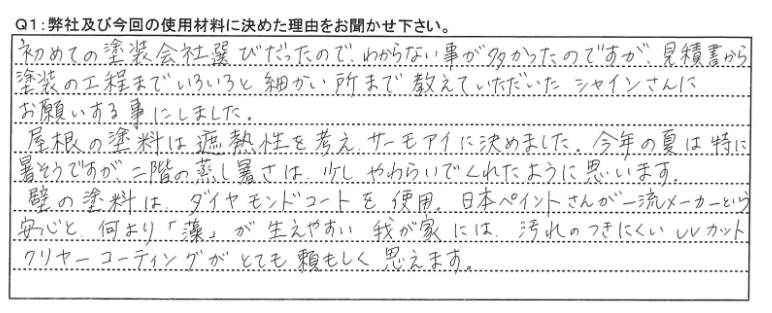 Q1:弊社及び今回の使用材料に決めた理由をお聞かせ下さい。
初めての塗装会社選びだったので、わからない事が多かったのですが、見積書から
塗装の工程までいろいろと細かい所まで教えていただいたシャインさんに
お願いする事にしました。
屋根の塗料は遮熱性を考え、サーモアイに決めました。今年の夏は特に
暑そうですが、二階の蒸し暑さは、少しやわらいでくれたように思います。
壁の塗料は、ダイヤモンドコートを使用。日本ペイントさんが一流メーカーという
安心と、何より「藻」が生えやすい我が家には、汚れのつきにくいUVカット
クリヤーコーティングがとても頼もしく思えます。